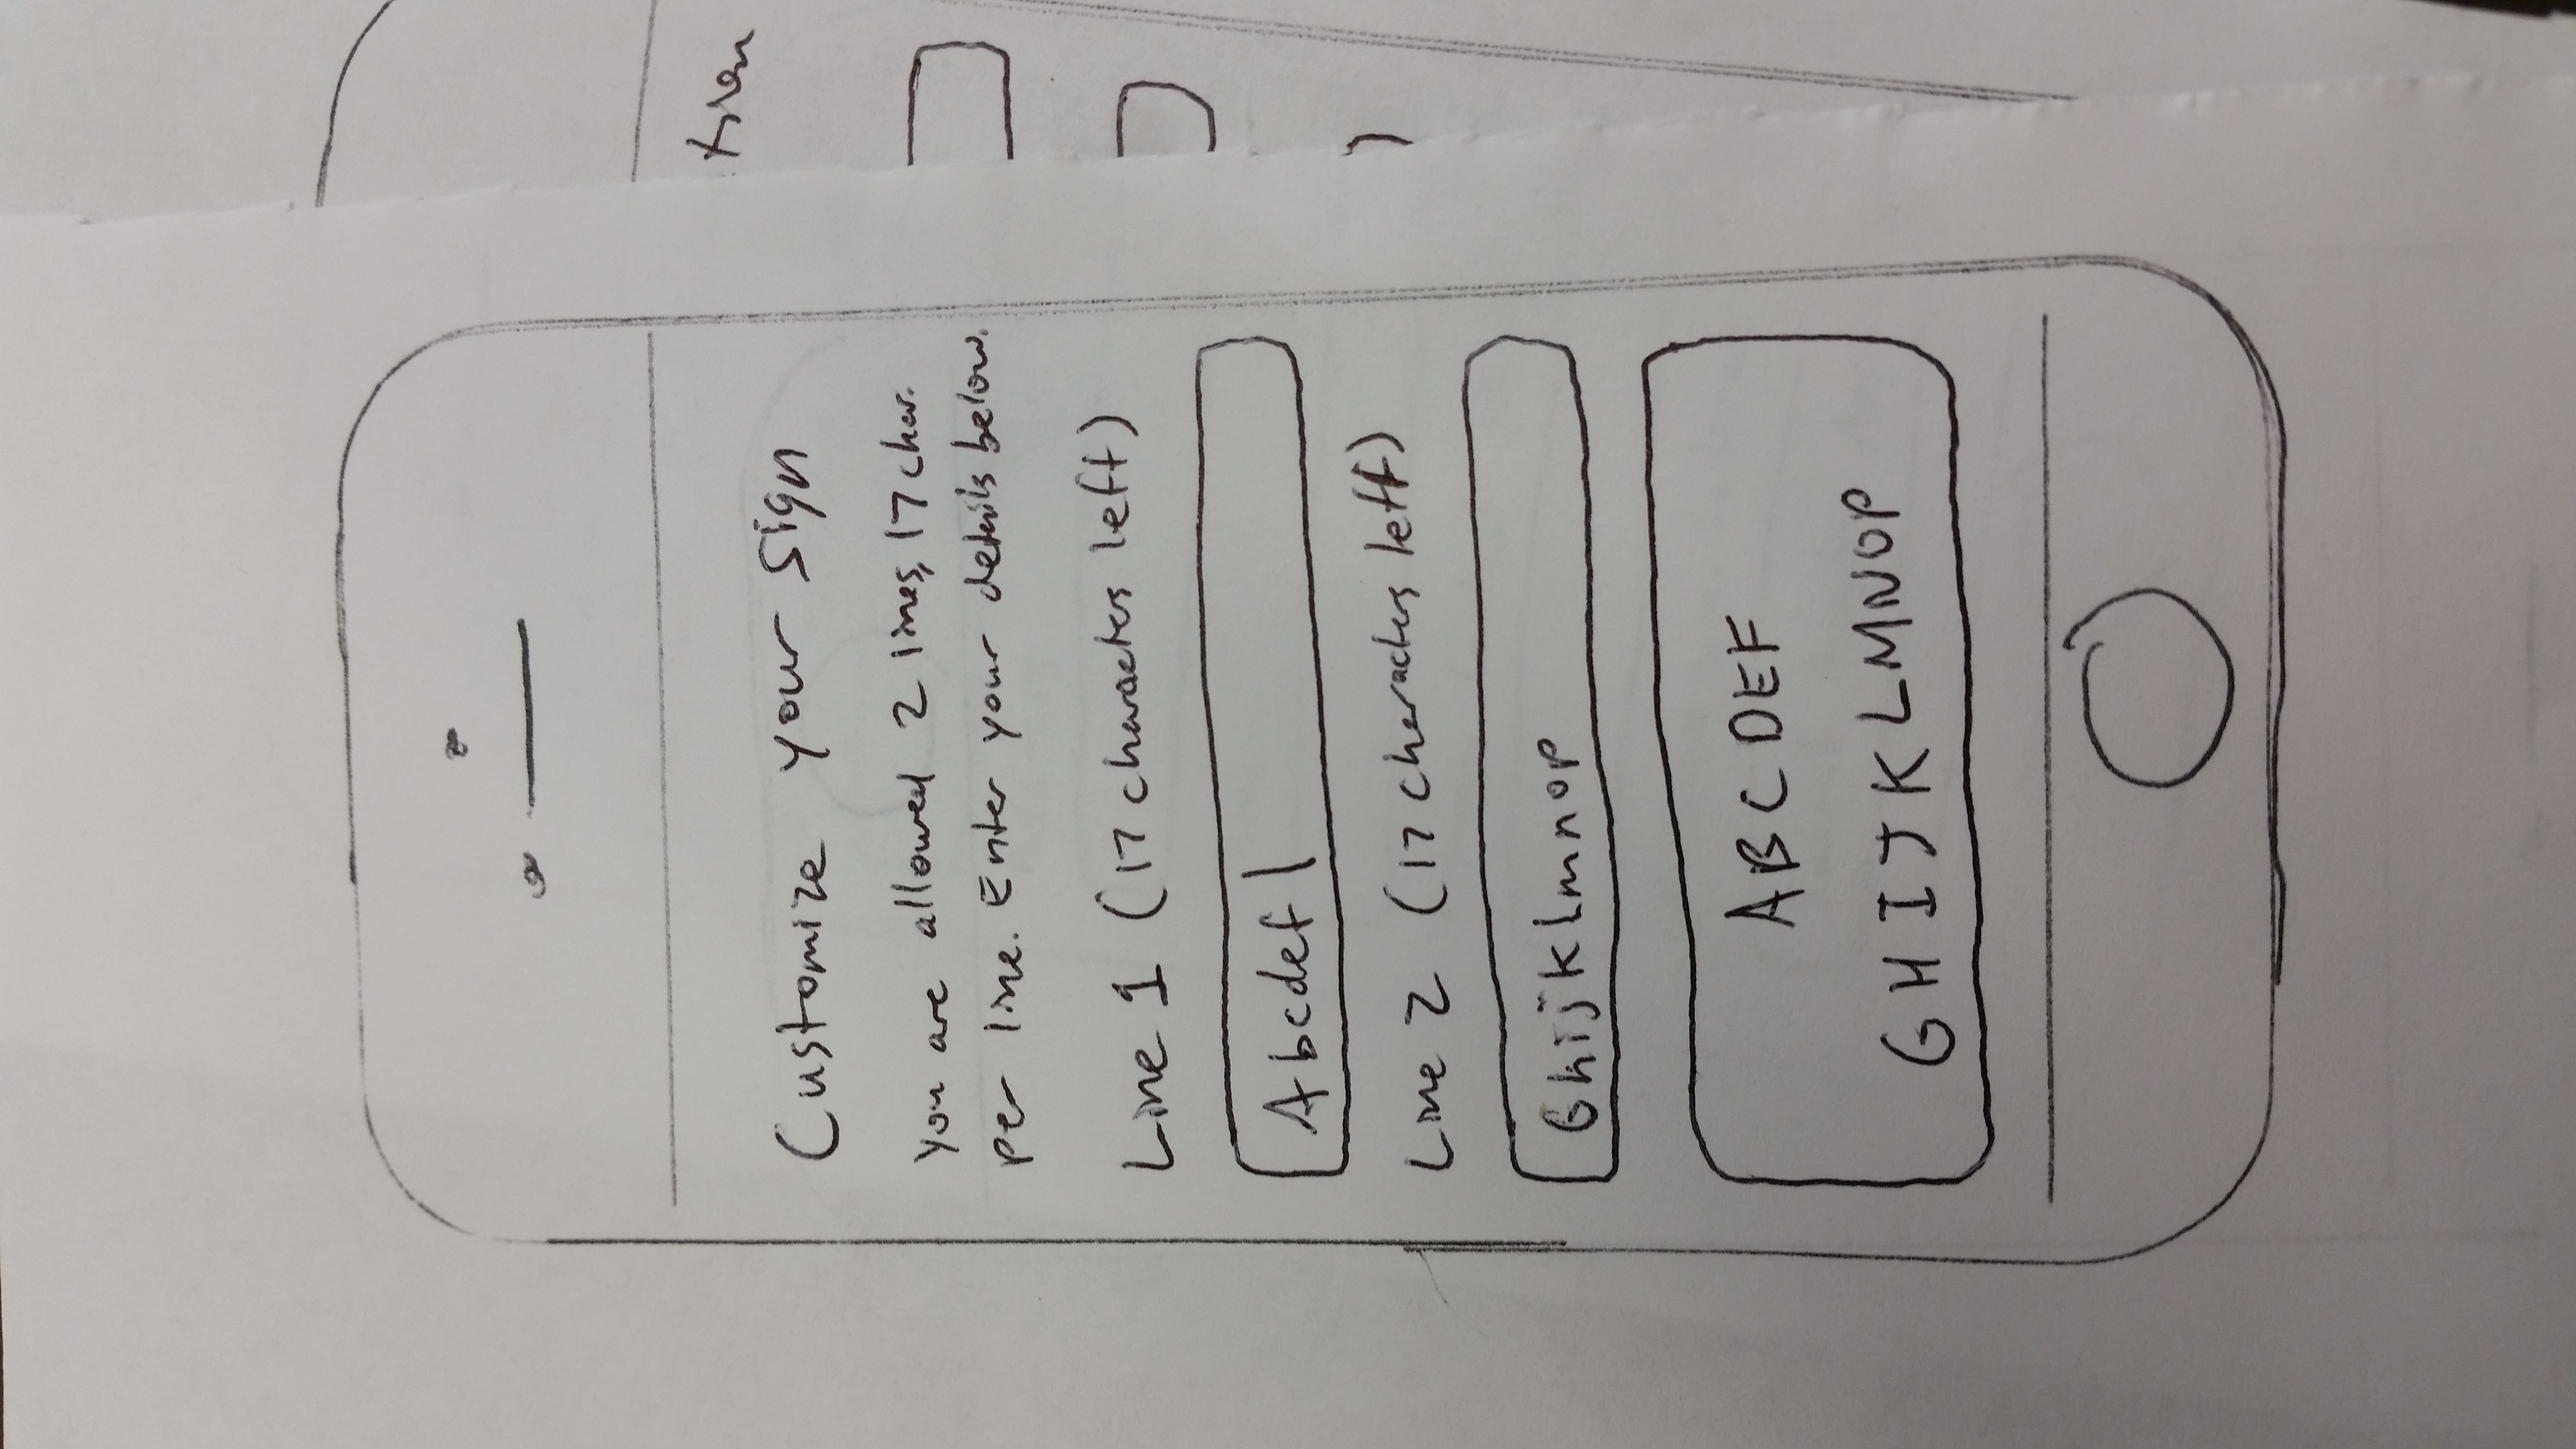 Customize your sign
You are allowed 2 lines, 17 char.
per line. Enter your details below.
Line 1 (17 characters left)
Abcdef|
Line 2 (17 characters left)
Ghijklmnop
ABCDEF
GHIJKLMNOP
tion
)